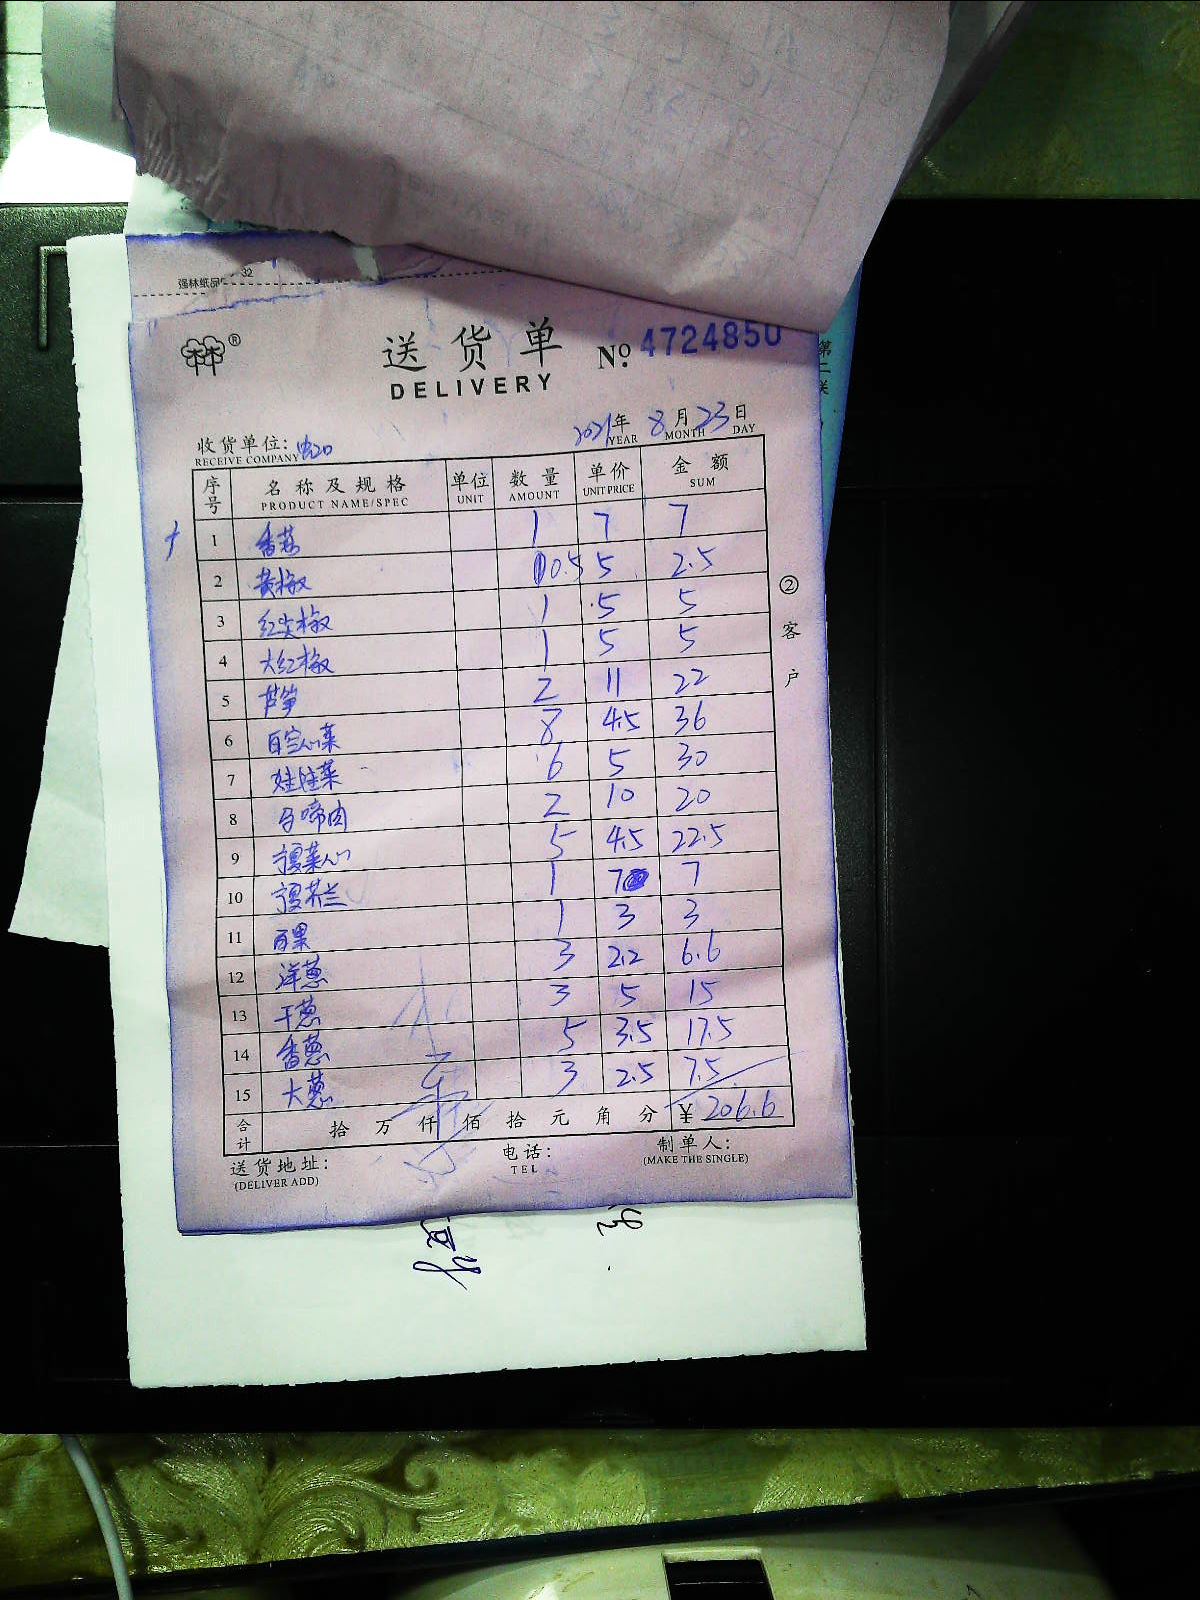 强林纸品 32
送货单 No. 4724850
DELIVERY
第二联
收货单位: 2021年 8月 23日
RECEIVE COMPANY YEAR MONTH DAY
序号 名称及规格 单位 数量 单价 金额
PRODUCT NAME/SPEC UNIT AMOUNT UNIT PRICE SUM
1 香荽 1 7 7
2 黄椒 0.5 5 2.5
3 红尖椒 1 5 5
4 大红椒 1 5 5
5 芦笋 2 11 22
6 心菜 8 4.5 36
7 娃娃菜 6 5 30
8 马啼肉 2 10 20
9 菜心 5 4.5 22.5
10 芥兰 1 7 7
11 百果 1 3 3
12 洋葱 3 2.2 6.6
13 干葱 3 5 15
14 香葱 5 3.5 17.5
15 大葱 3 2.5 7.5
合计 拾 万 仟 佰 拾 元 角 分 ¥ 206.6
送货地址: 电话: 制单人:
(DELIVER ADD) TEL (MAKE THE SINGLE)
②客户